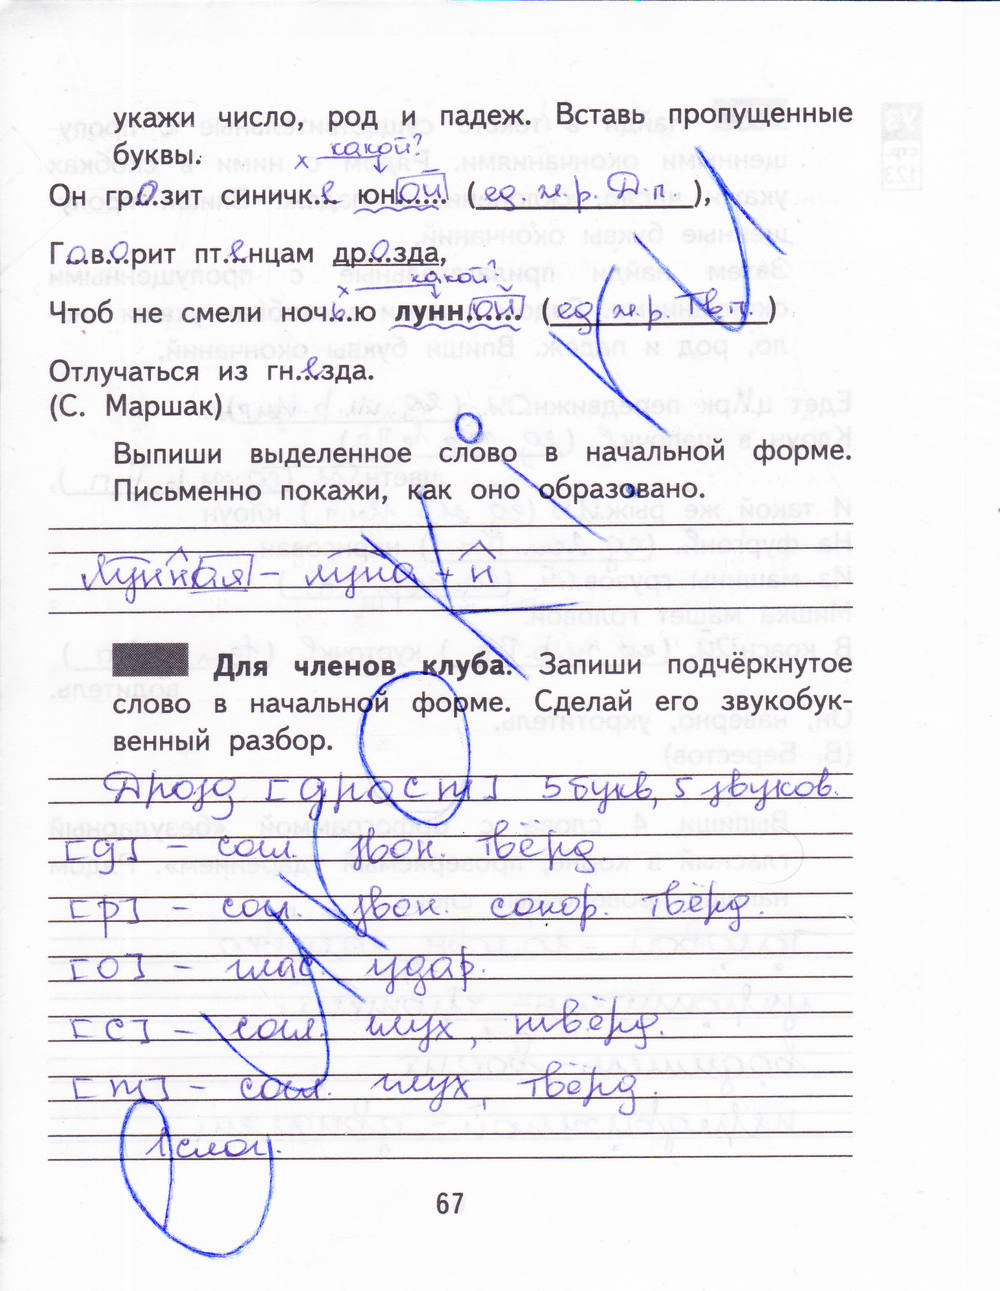 укажи число, род и падеж. Вставь пропущенные
буквы.
х какой?
Он гр.о.зит синичк.е юн.ой.... (ед. ж.р. Д.п.),
Г.о.в.о.рит пт.е.нцам др.о.зда,
х какой?
Чтоб не смели ноч.ь.ю лунн.ой.... (ед. ж.р. Тв.п.)
Отлучаться из гн.е.зда.
(С. Маршак)
Выпиши выделенное слово в начальной форме.
Письменно покажи, как оно образовано.
Лунная – луна + н
Для членов клуба. Запиши подчёркнутое
слово в начальной форме. Сделай его звукобук-
венный разбор.
Дрозд [дрост] 5 букв, 5 звуков.
[д] – согл. звон. твёрд
[р] – согл. звон. сонор. твёрд.
[о] – глас. удар.
[с] – согл. глух, твёрд.
[т] – согл. глух, твёрд.
1 слог.
67